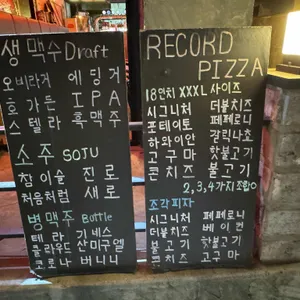 생 맥수 Draft
오비라거 에딩거
호가든 IPA
스텔라 흑맥주
소주 SOJU
참이슬 진로
처음처럼 새로
병맥주 Buttle
테라 기네스
클라우드 산미구엘
코로나 버니니
RECORD
PIZZA
18인치 XXXL 사이즈
시그니처 더블치즈
포테이토 페페로니
하와이안 갈릭나초
고구마 핫불고기
콘치즈 불고기
2,3,4가지 조합O
조각피자
시그니처 페페로니
더블치즈 베이컨
불고기 핫불고기
콘치즈 고구마